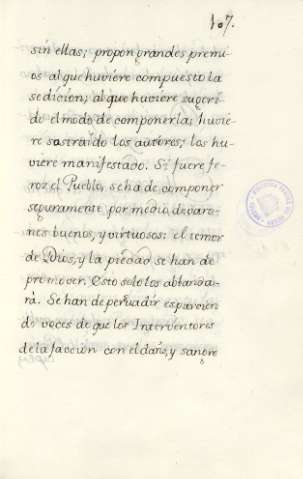 107.
sin ellas; propon grandes premi
os al que huviere compuesto la
sedicion; al que huviere sugeri
do el modo de componerla; huvie
re sustraído los autores; los hu
viere manifestado. Si fuere fe
roz el Pueblo, se ha de componer
seguramente por medio de varo
nes buenos, y virtuosos: el temor
de Dios, y la piedad se han de
promover. Esto solo los ablanda
rà. Se han de persuadir esparcien
do voces de que los Interventores
de la faccion con el daño, y sangre